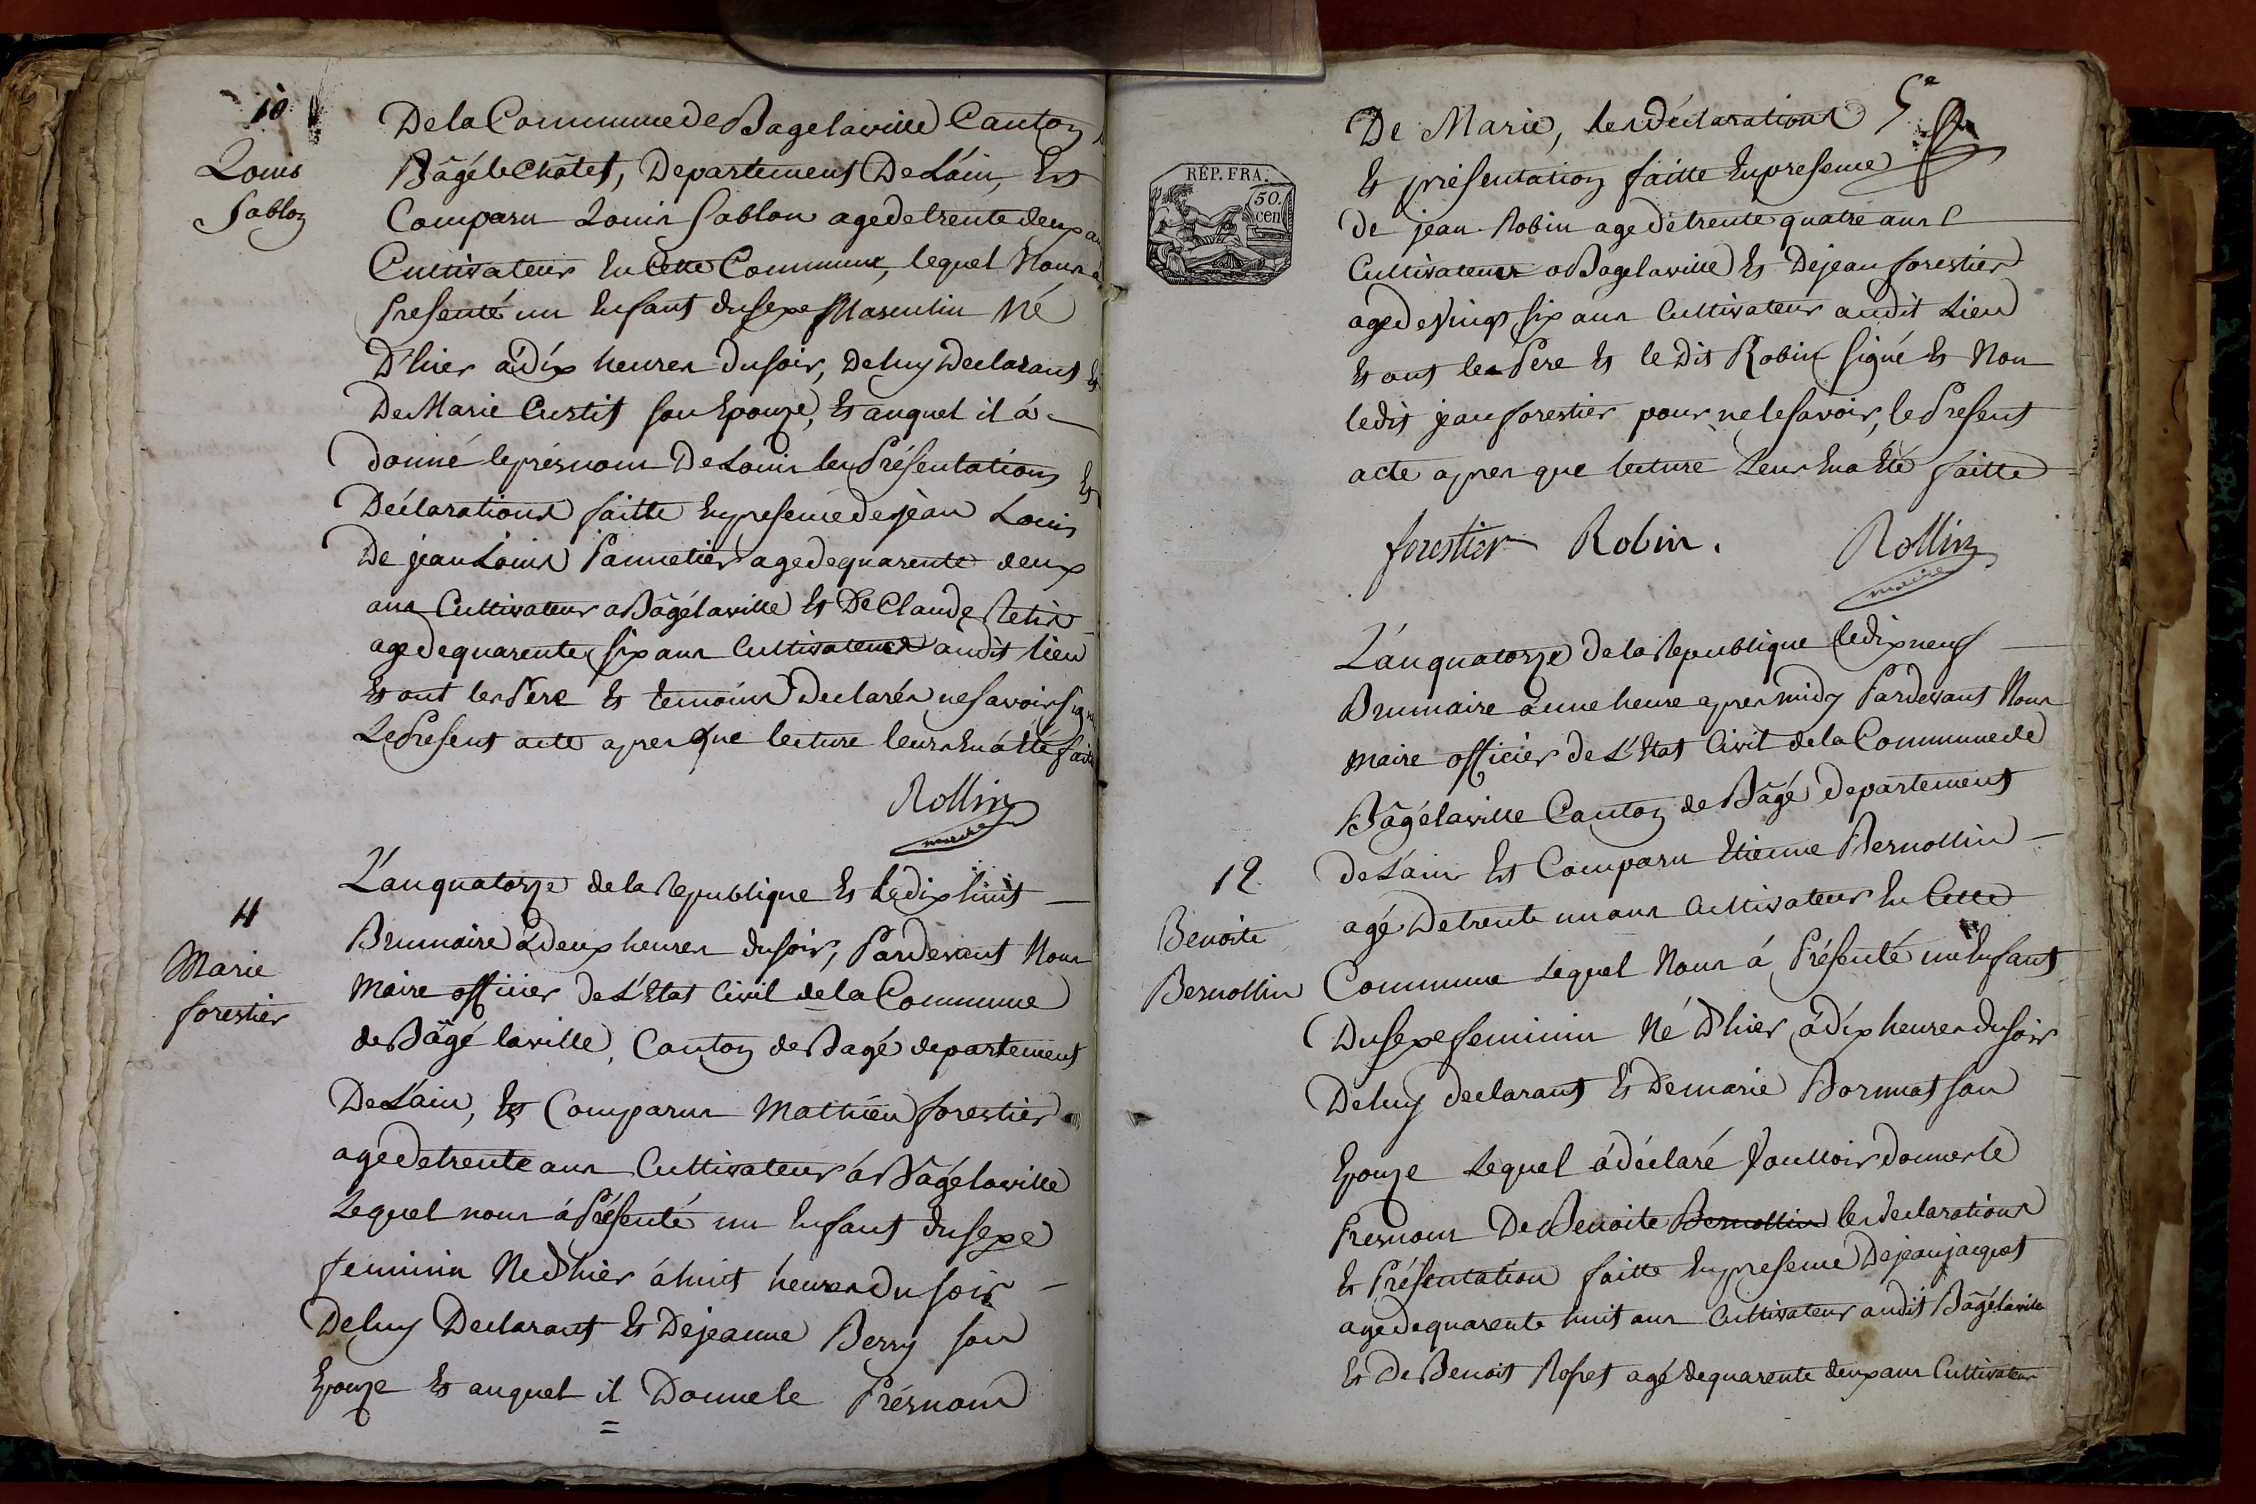 10
Louis
Sablon
De la Commune de Bagelaville Canton
Bâgé le Châtel, Departement De Láin, Est
Comparu Louis Sablon age de trente deux an
Cultivateur En Cette Commune, lequel Nous à
Presenté un Enfant du sexe Masculin Né
D'hier á dix heures du soir, De luy Declarant Et
De Marie Curtil son Epouze, Et auquel il á
donné le présnom De Louis les Présentations Et
Déclarations faitte En presence de jean Louis
De jean Louis Pannetier age de quarente deux
ans Cultivateur a Bâgélaville Et De Claude
age de quarente six ans Cultivateur audit lieu
Et ont les Pere Et temoins Declarés ne Savoir sign
Le Present acte apres que lecture leurs En á été faite
Rollin
maire
11
Marie
forestier
L'an quatorze de la Republique Et le dix huit
Brumaire á deux heures du soir, Pardevant Nous
Maire officier De L'Etat Civil de la Commune
de Bâgé laville, Canton de Bagé departement
De Láin, Est Comparus Mathieu forestier
age de trente ans Cultivateur á Bâgélaville
Lequel nous á Présenté un Enfant du sexe
feminin Né D'hier á huit heures du soir
De luy Declarant Et De jeanne Berry son
Epouze Et auquel il Donne le Présnom
5e
De Marie, les déclarations
Et présentation faitte En presence
RÉP. FRA.
50.
cen
De jean Robin age de trente quatre ans
Cultivateur a Bagelaville Et De jean forestier
age de Vingt six ans Cultivateur audit Lieu
Et ont les Pere Et le Dit Robin Signé Et Non
ledit jean forestier pour ne le savoir, le Present
acte apres que lecture Leur En a Eté faitte
forestier Robin. Rollin
maire
L'an quatorze de la Republique le dix neuf
Brumaire á une heure apres midy Pardevant Nous
maire officier de L'Etat Civil de la Commune de
Bâgélaville Canton de Bâgé departement
12
Benoite
Bernollin
de Láin Est Comparu Etienne Bernollin
agé De trente un ans Cultivateur En Cette
Commune Lequel Nous á Présenté un Enfant
Du sexe feminin Né D'hier á dix heures du soir
De luy declarant Et De marie Bornuat son
Epouze Lequel á déclaré Voulloir donner le
Presnom De Benoite Bernollin les declarations
Et Présentation faitte En presence De jean jacquet
age de quarente huit ans Cultivateur audit Bâgélaville
Et De Benoit Roset agé de quarente deux ans Cultivateur